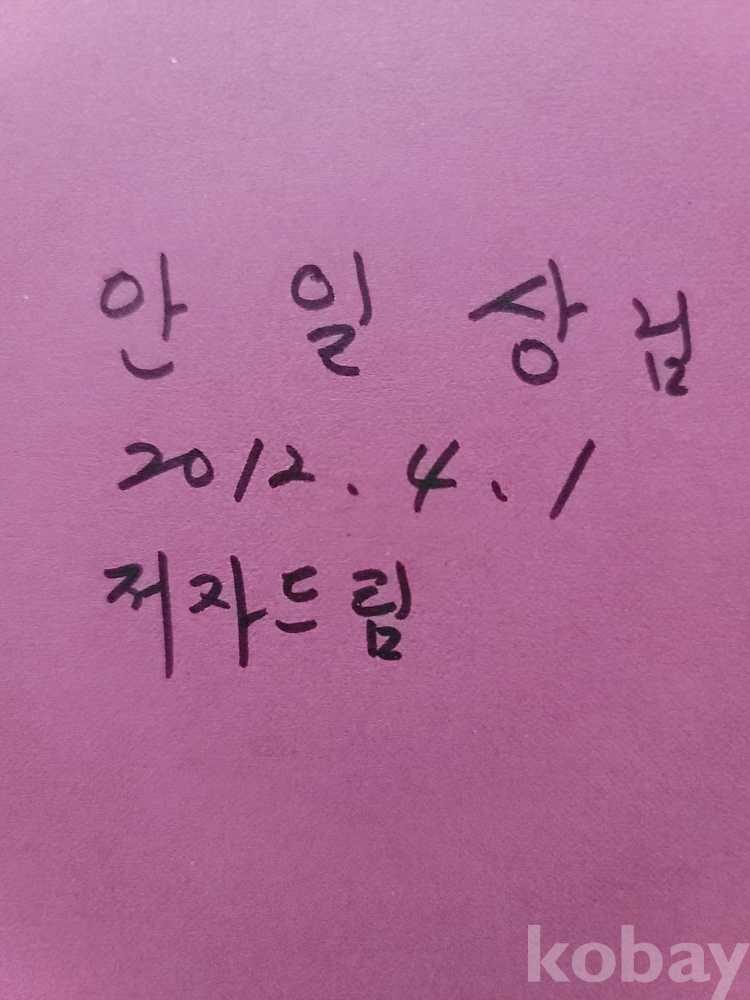 안 일 상 님
2012. 4. 1
저자드림
kobay